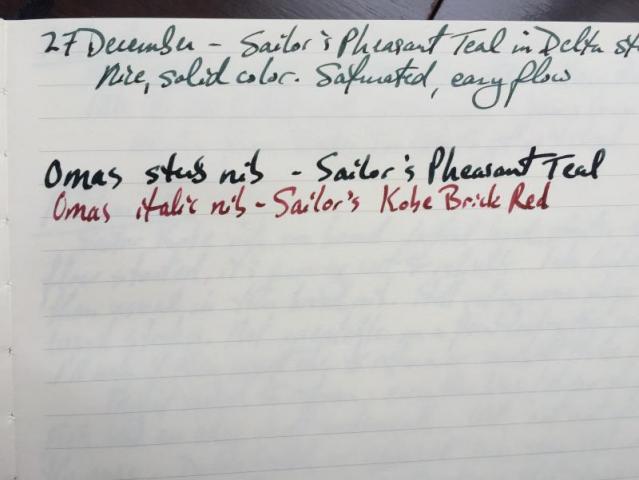 27 December - Sailor's Pheasant Teal in Delta
Nice, solid color. Saturated, easy flow
Omas stub nib - Sailor's Pheasant Teal
Omas italic nib - Sailor's Kobe Brick Red